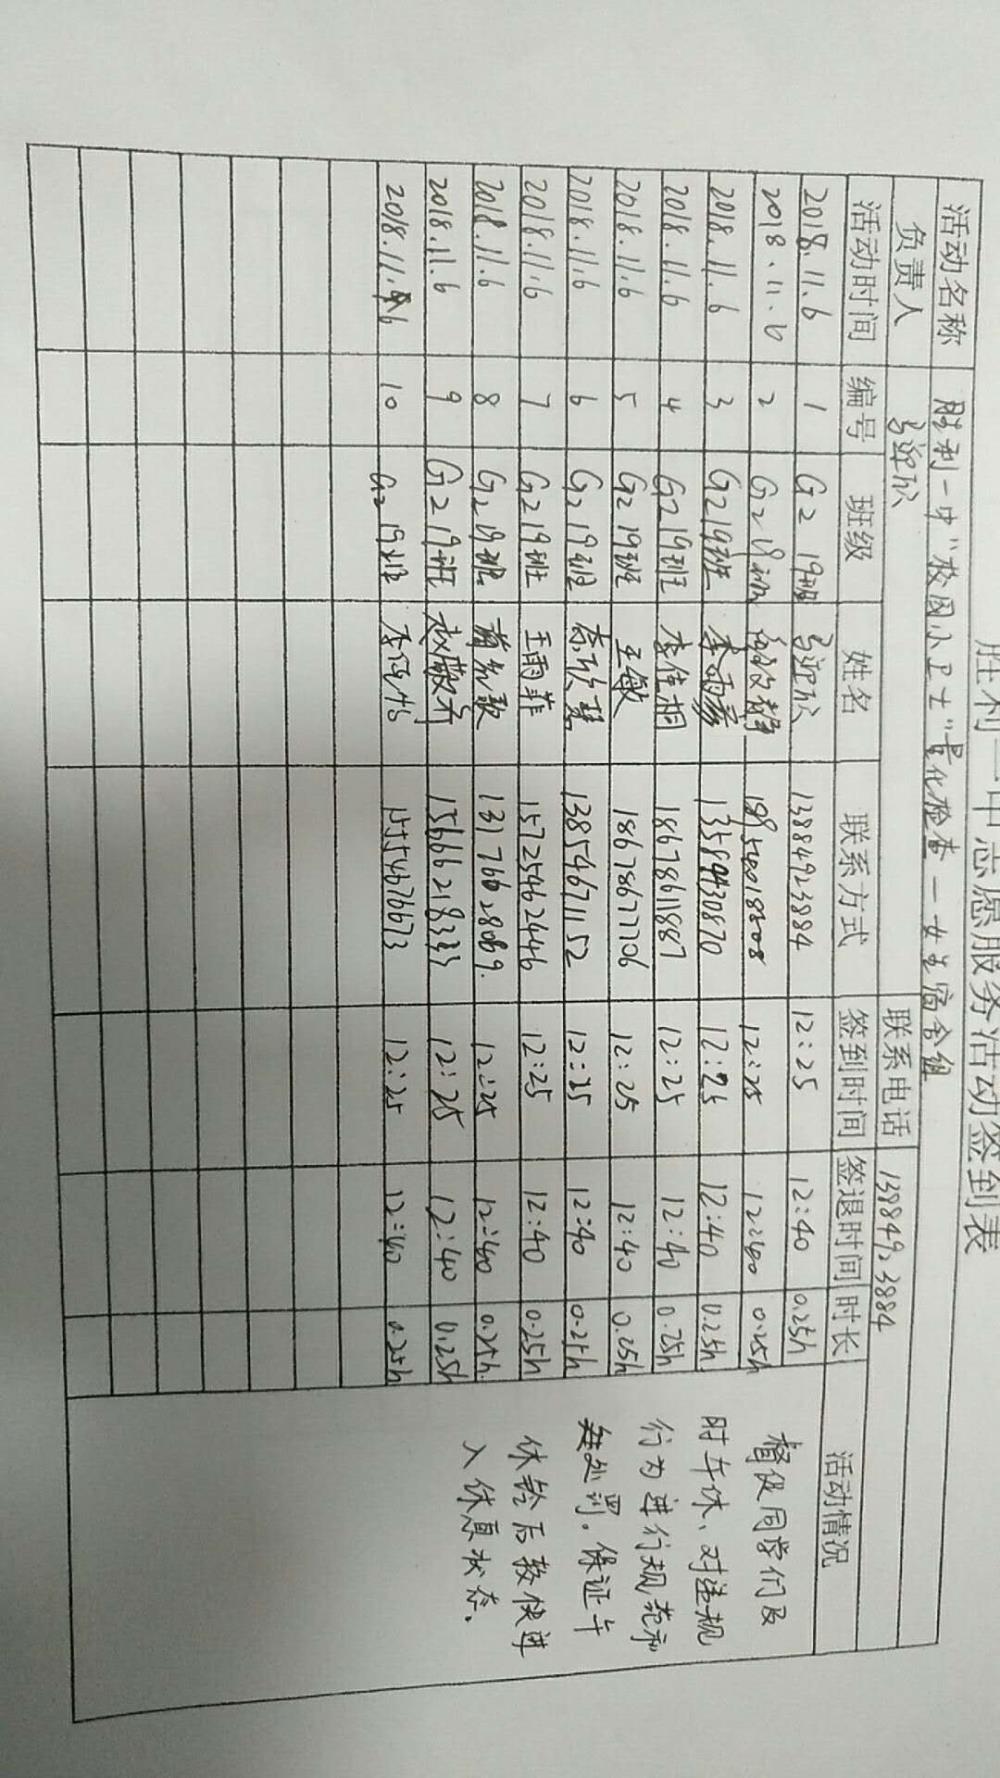 胜利一中志愿服务活动签到表
活动名称 胜利一中"校园小卫士"量化检查—女生宿舍组
负责人 弓迎欣 联系电话 13884923884
活动时间 编号 班级 姓名 联系方式 签到时间 签退时间 时长 活动情况
2018.11.6 1 G2 19班 弓迎欣 13884923884 12:25 12:40 0.25h
2018.11.6 2 G2 19班 12:25 12:40 0.25h
2018.11.6 3 G219班 李雨 12:25 12:40 0.25h
2018.11.6 4 G219班 李佳相 18678611887 12:25 12:40 0.25h
2018.11.6 5 G2 19班 王敏 18678677706 12:25 12:40 0.25h
2018.11.6 6 G2 19班 李欣慧 13854671152 12:25 12:40 0.25h
2018.11.6 7 G219班 王雨菲 15725462446 12:25 12:40 0.25h
2018.11.6 8 G219班 12:25 12:40 0.25h
2018.11.6 9 G219班 赵薇齐 15666218333 12:25 12:40 0.25h
2018.11.6 10 G2 19班 15554676673 12:25 12:40 0.25h
督促同学们及
时午休、对违规
行为进行规范和
处罚。保证午
休铃后较快进
入休息状态。